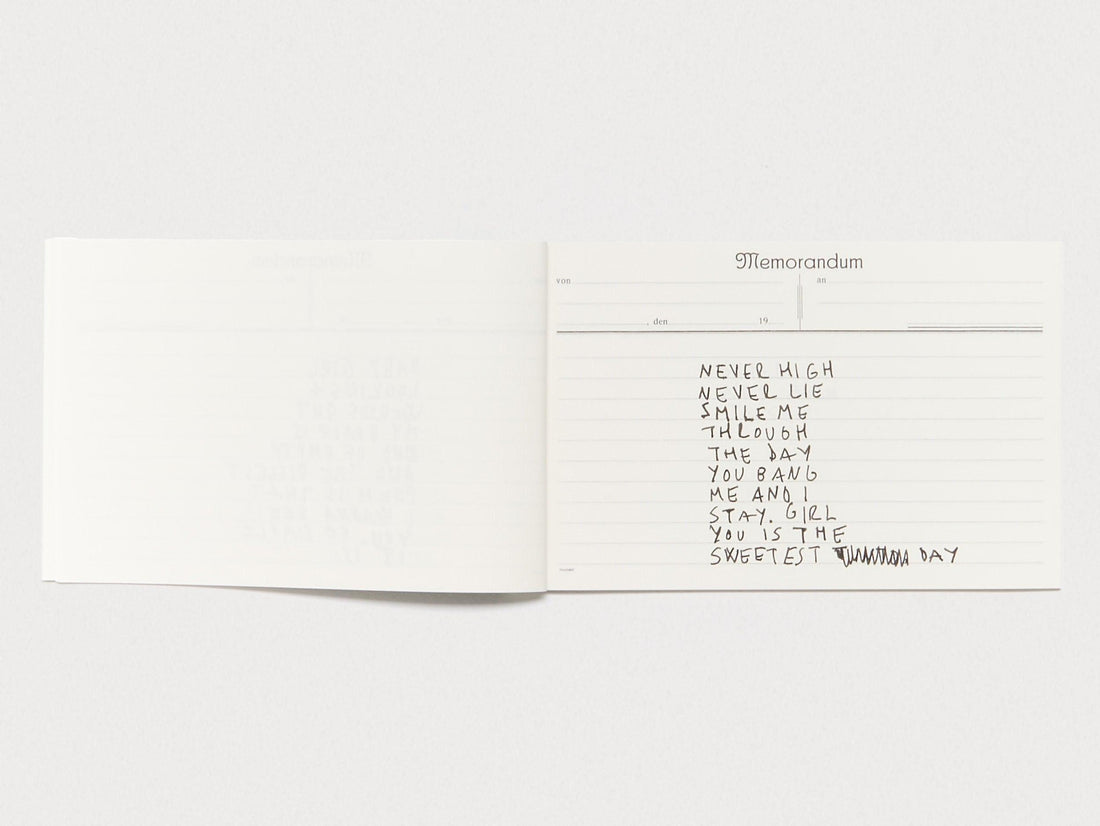 Memorandum
von an
, den 19
NEVER HIGH
NEVER LIE
SMILE ME
THROUGH
THE DAY
YOU BANG
ME AND I
STAY. GIRL
YOU IS THE
SWEETEST DAY